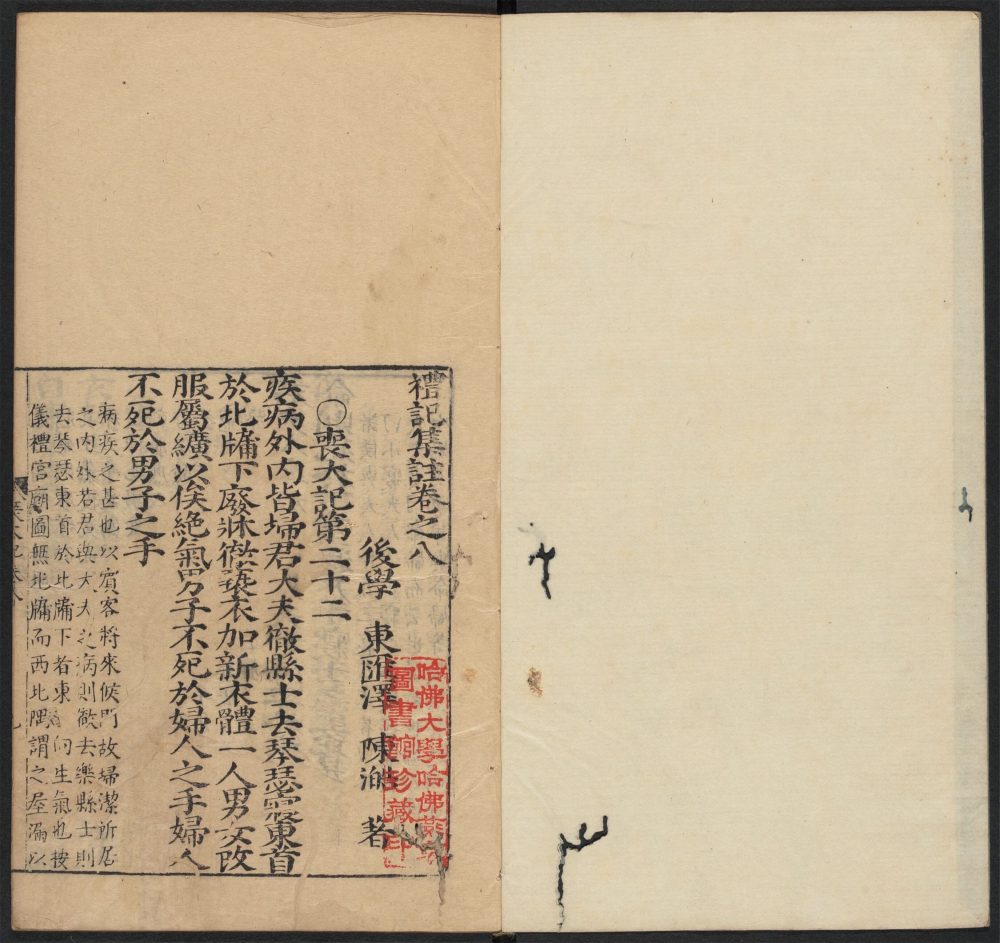 禮記集註卷之八
後學 東匯澤 陳澔 著
○喪大記第二十二
疾病外内皆埽君大夫徹縣士去琴瑟寢東首
於北牖下廢牀徹褻衣加新衣體一人男女改
服屬纊以俟絶氣男子不死於婦人之手婦人
不死於男子之手
病疾之甚也以賓客將來候問故埽潔所居
之内外若君與大夫之病則徹去樂縣士則
去琴瑟東首於北牖下者東首向生氣也按
儀禮宮廟圖無北牖而西北隅謂之屋漏以
哈佛大學哈佛燕京
圖書館珍藏印